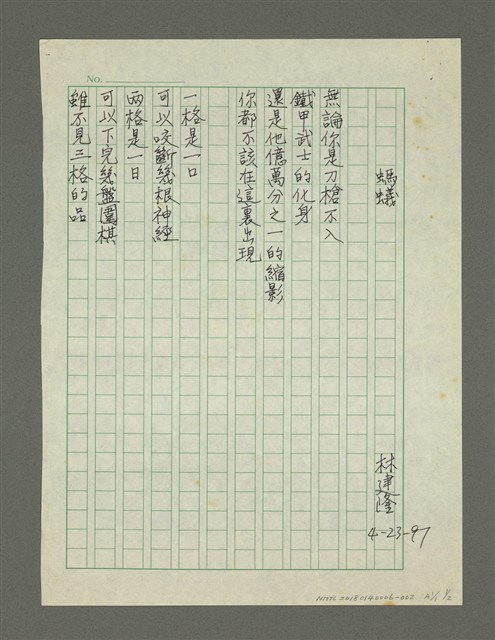 No.
螞蟻
林建隆
4-23-97
無論你是刀槍不入
鐵甲武士的化身
還是他億萬分之一的縮影
你都不該在這裏出現
一格是一口
可以咬斷幾根神經
兩格是一日
可以下完幾盤圍棋
雖不見三格的品
NMTL20180140006-002